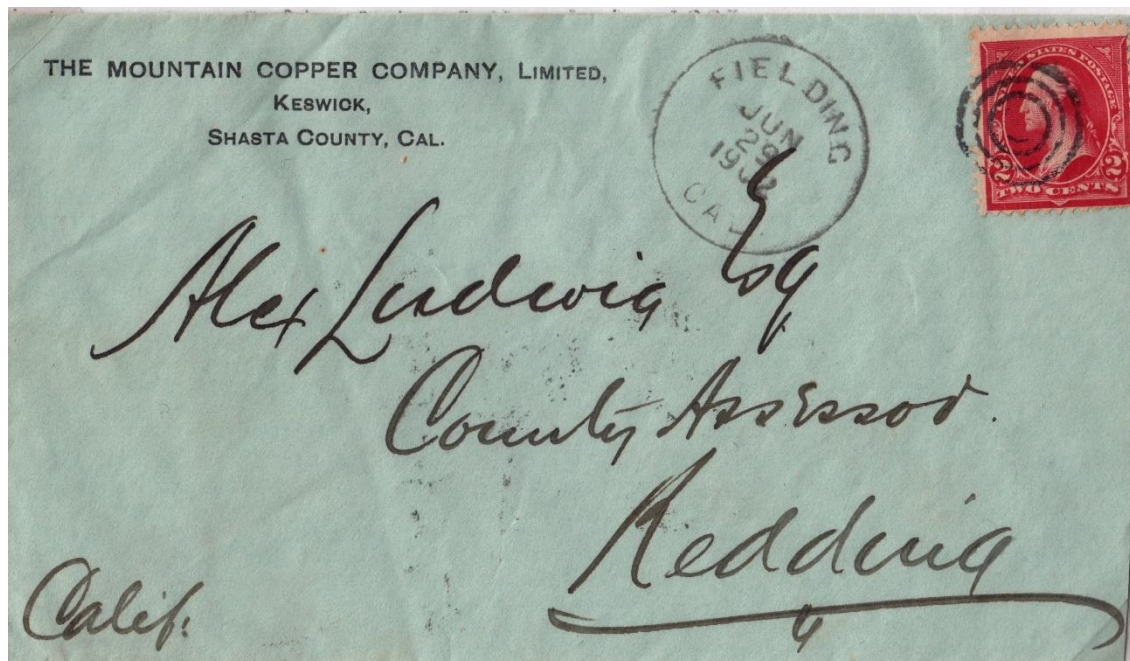 THE MOUNTAIN COPPER COMPANY, LIMITED,
KESWICK,
SHASTA COUNTY, CAL.
FIELDING
JUN
29
1902
CAL.
UNITED STATES POSTAGE
2 2
TWO CENTS
Alex Ludwig Esq
County Assessor.
Redding
Calif: